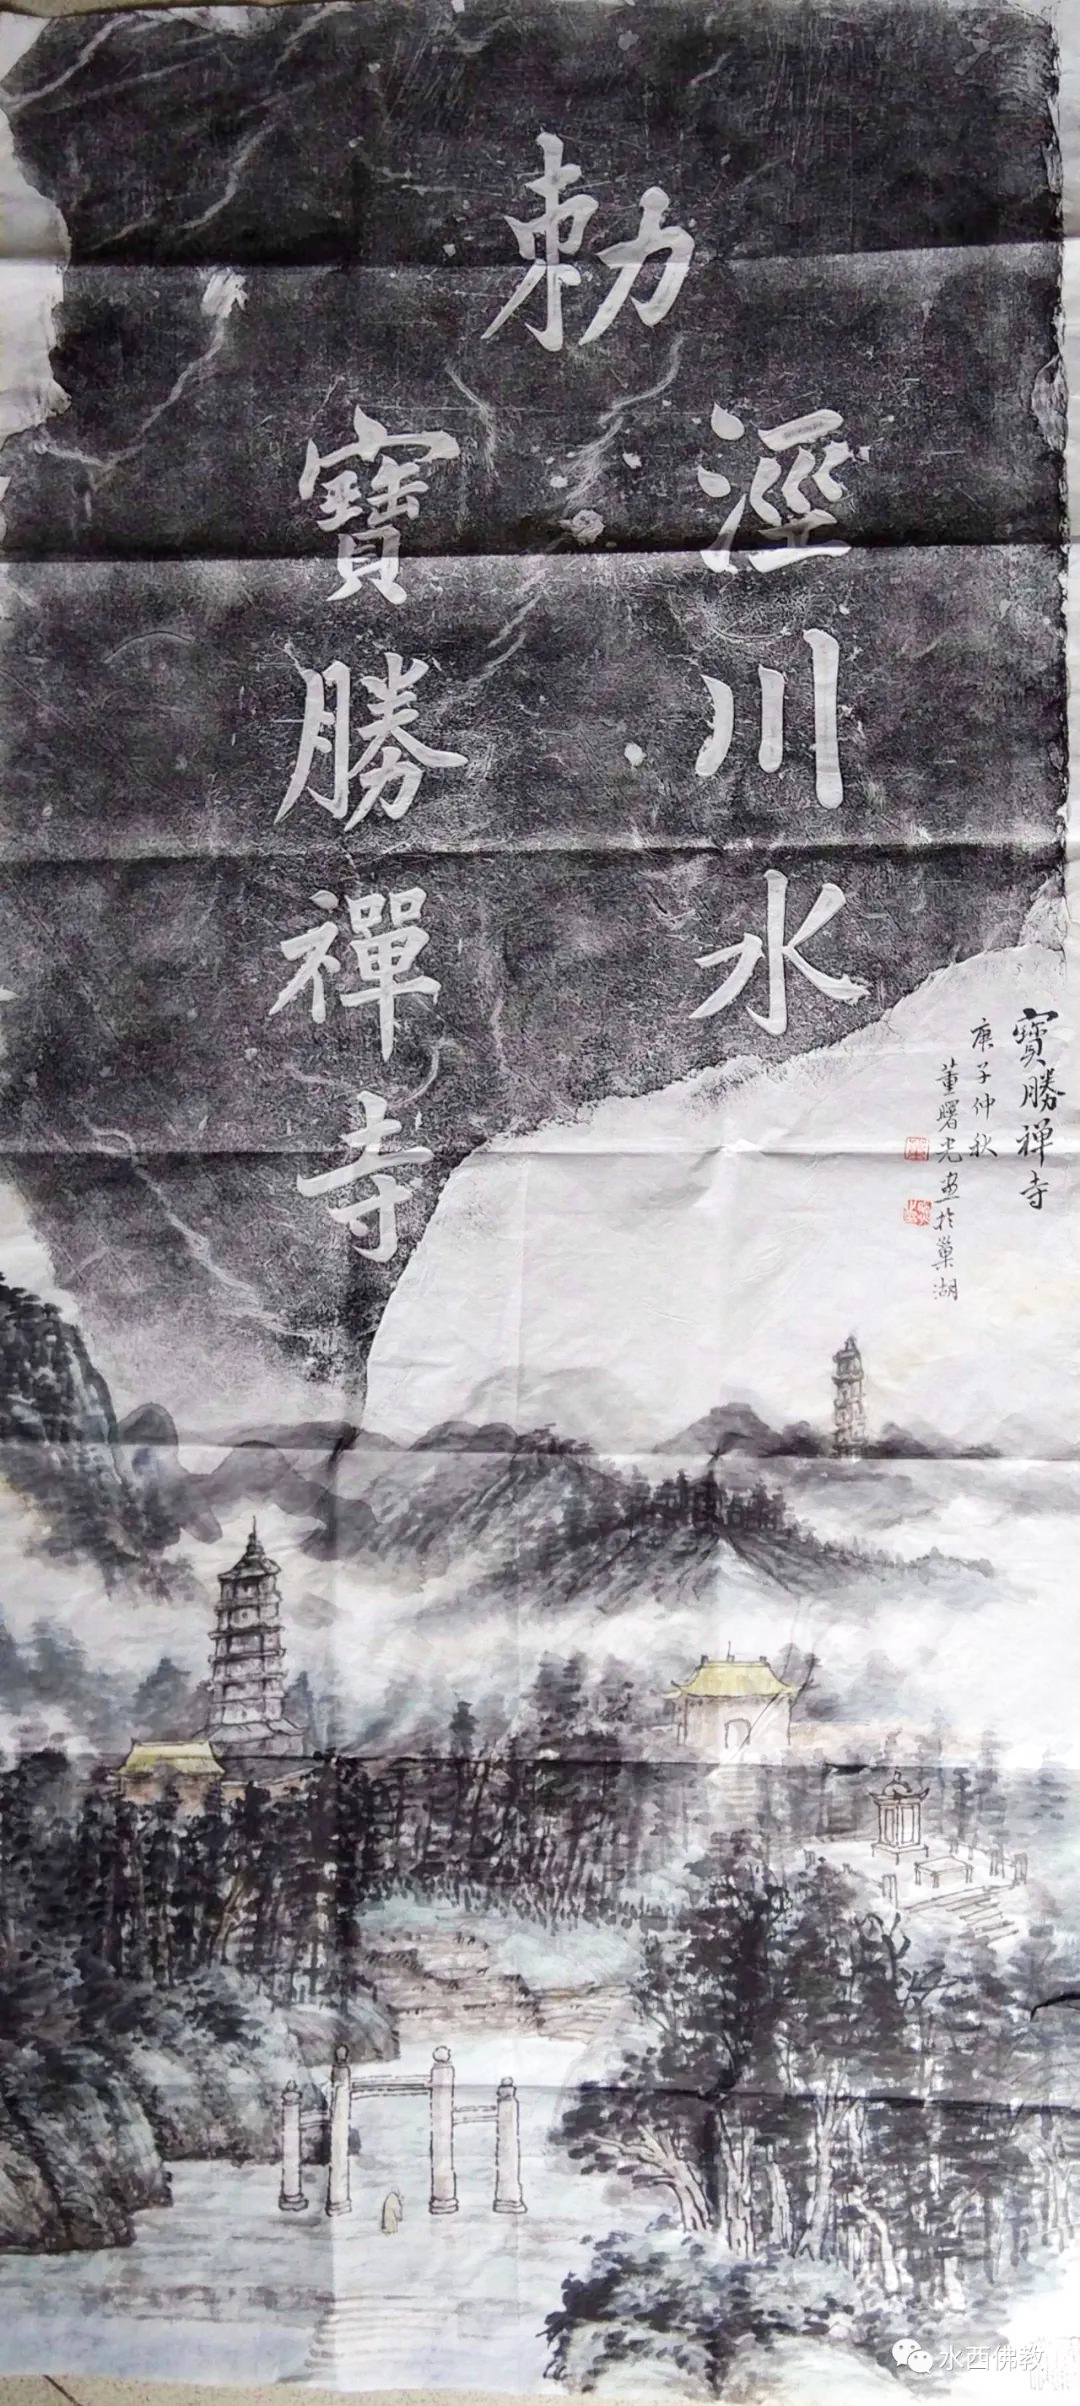 勅
涇川水
寶勝禪寺
寶勝禅寺
庚子仲秋
董曙光画於巢湖
水西佛教